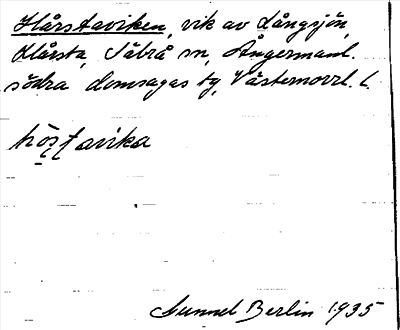 Hårstaviken, vik av Långsjön,
Hårsta, Säbrå sn, Ångermanl.
södra domsagas tg, Västernorrl. l.
hòs̠t̠avika
Gunnel Berlin 1935